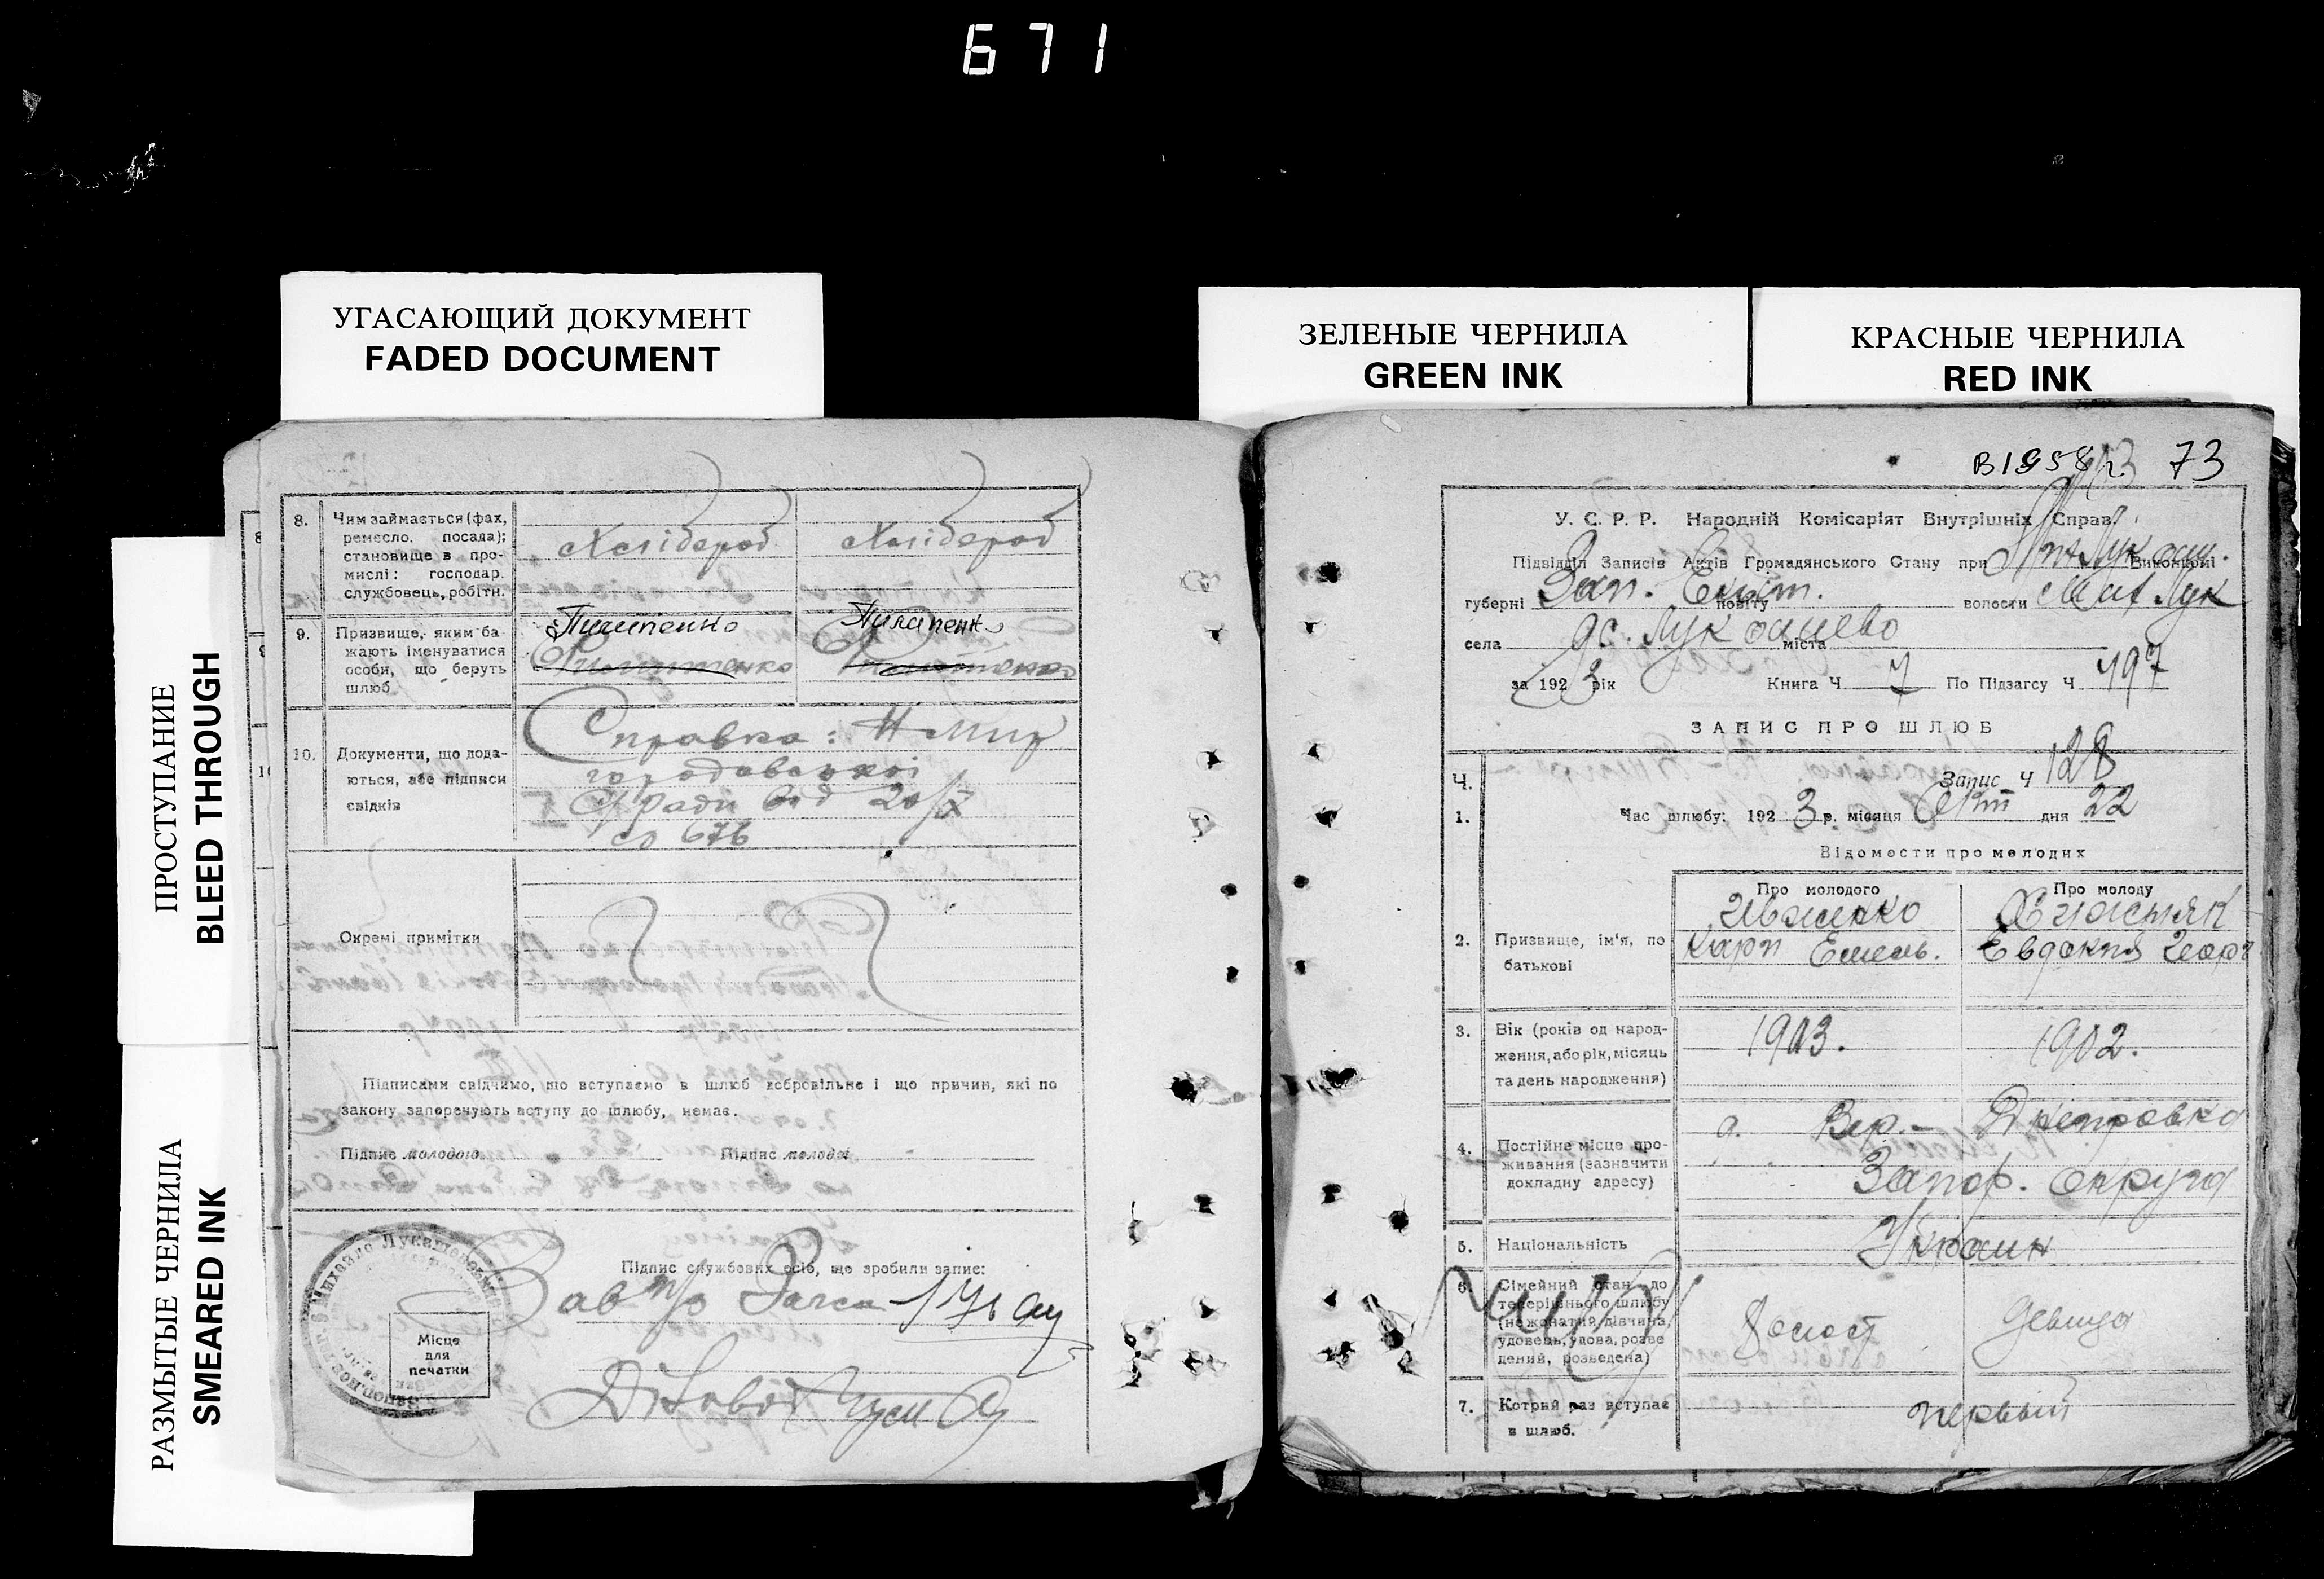 671
УГАСАЮЩИЙ ДОКУМЕНТ
FADED DOCUMENT
ЗЕЛЕНЫЕ ЧЕРНИЛА
GREEN INK
КРАСНЫЕ ЧЕРНИЛА
RED INK
ПРОСТУПАНИЕ
BLEED THROUGH
РАЗМЫТЫЕ ЧЕРНИЛА
SMEARED INK
8. Чим займається (фах,
ремесло, посада);
становище в про-
мислі: господар.
службовець, робітн.
Хлібороб Хлібороб
9. Призвище, яким ба-
жають іменуватися
особи, що беруть
шлюб
Пилипенко Пилипенк
10. Документи, що дода-
ються, або підписи
свідків
Справка: Н-Мир
городоватої
С/ради від 20/X
676
Окремі примітки
Підписами свідчимо, що вступаємо в шлюб добровільне і що причин, які по
закону заперечують вступу до шлюбу, немає.
Підпис молодого Підпис молодої
Підпис службових осіб, що зробили запис:
Зав п/о Загса
Діловод
Місце
для
печатки
73
У. С. Р. Р. Народній Комісаріят Внутрішніх Справ
Підвідділ Записів Актів Громадянського Стану при Виконкомі
губерні Зап. повіту волости Мих Лук
села с. Лукашево міста
за 1923 рік Книга Ч. 7 По Підзагсу Ч. 197
ЗАПИС ПРО ШЛЮБ
Ч. Запис Ч 128
1. Час шлюбу: 1923 р. місяця Окт дня 22
Відомости про молодих
Про молодого Про молоду
2. Призвище, ім'я, по
батькові
Иваненко
Карп Емель. Евдокия Георг
3. Вік (років од народ-
ження, або рік, місяць
та день народження)
1903. 1902.
4. Постійне місце про-
живання (зазначити
докладну адресу)
д. Вер.- Днепровка
Запор. Округа
5. Національність
Украин
6. Сімейний стан до
теперішнього шлюбу
(нежонатий, дівчина,
удовець, удова, розве
дений, розведена)
Холост девица
7. Котрий раз вступає
в шлюб.
первый